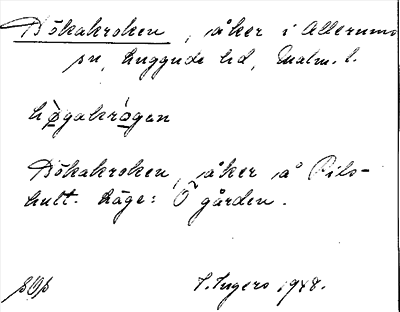 Hökakroken, åker i Allerums
sn, Luggude hd, Malm. l.
høgakrogan
Hökakroken, åker å Pils-
hult. Läge: Ö gården.
I. Ingers 1948.